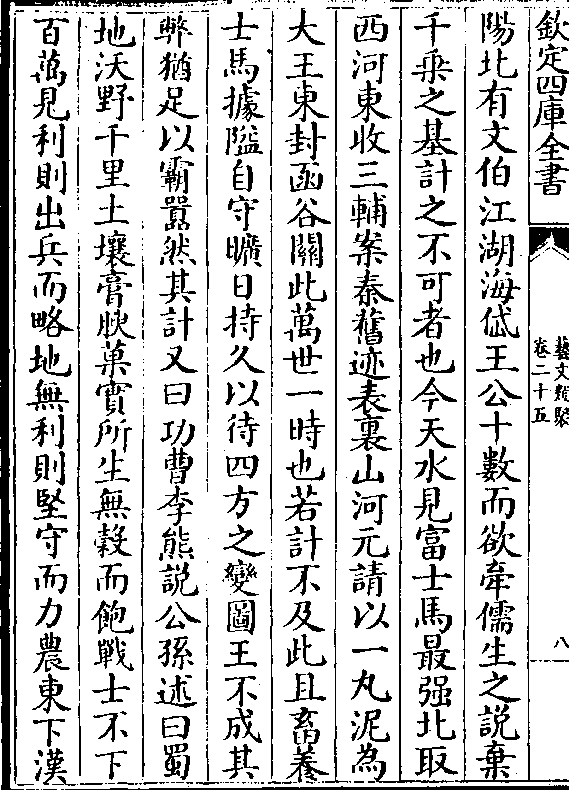 欽定四庫全書
藝文類聚
卷二十五
八
陽北有文伯江湖海岱王公十數而欲牽儒生之説棄
千乗之基計之不可者也今天水見富士馬最强北取
西河東收三輔案秦舊迹表裏山河元請以一丸泥為
大王東封函谷關此萬世一時也若計不及此且畜養
士馬據隘自守曠日持久以待四方之變圖王不成其
弊猶足以霸囂然其計又曰功曹李熊説公孫述曰蜀
地沃野千里土壤膏腴菓實所生無穀而飽戰士不下
百萬見利則出兵而略地無利則堅守而力農東下漢